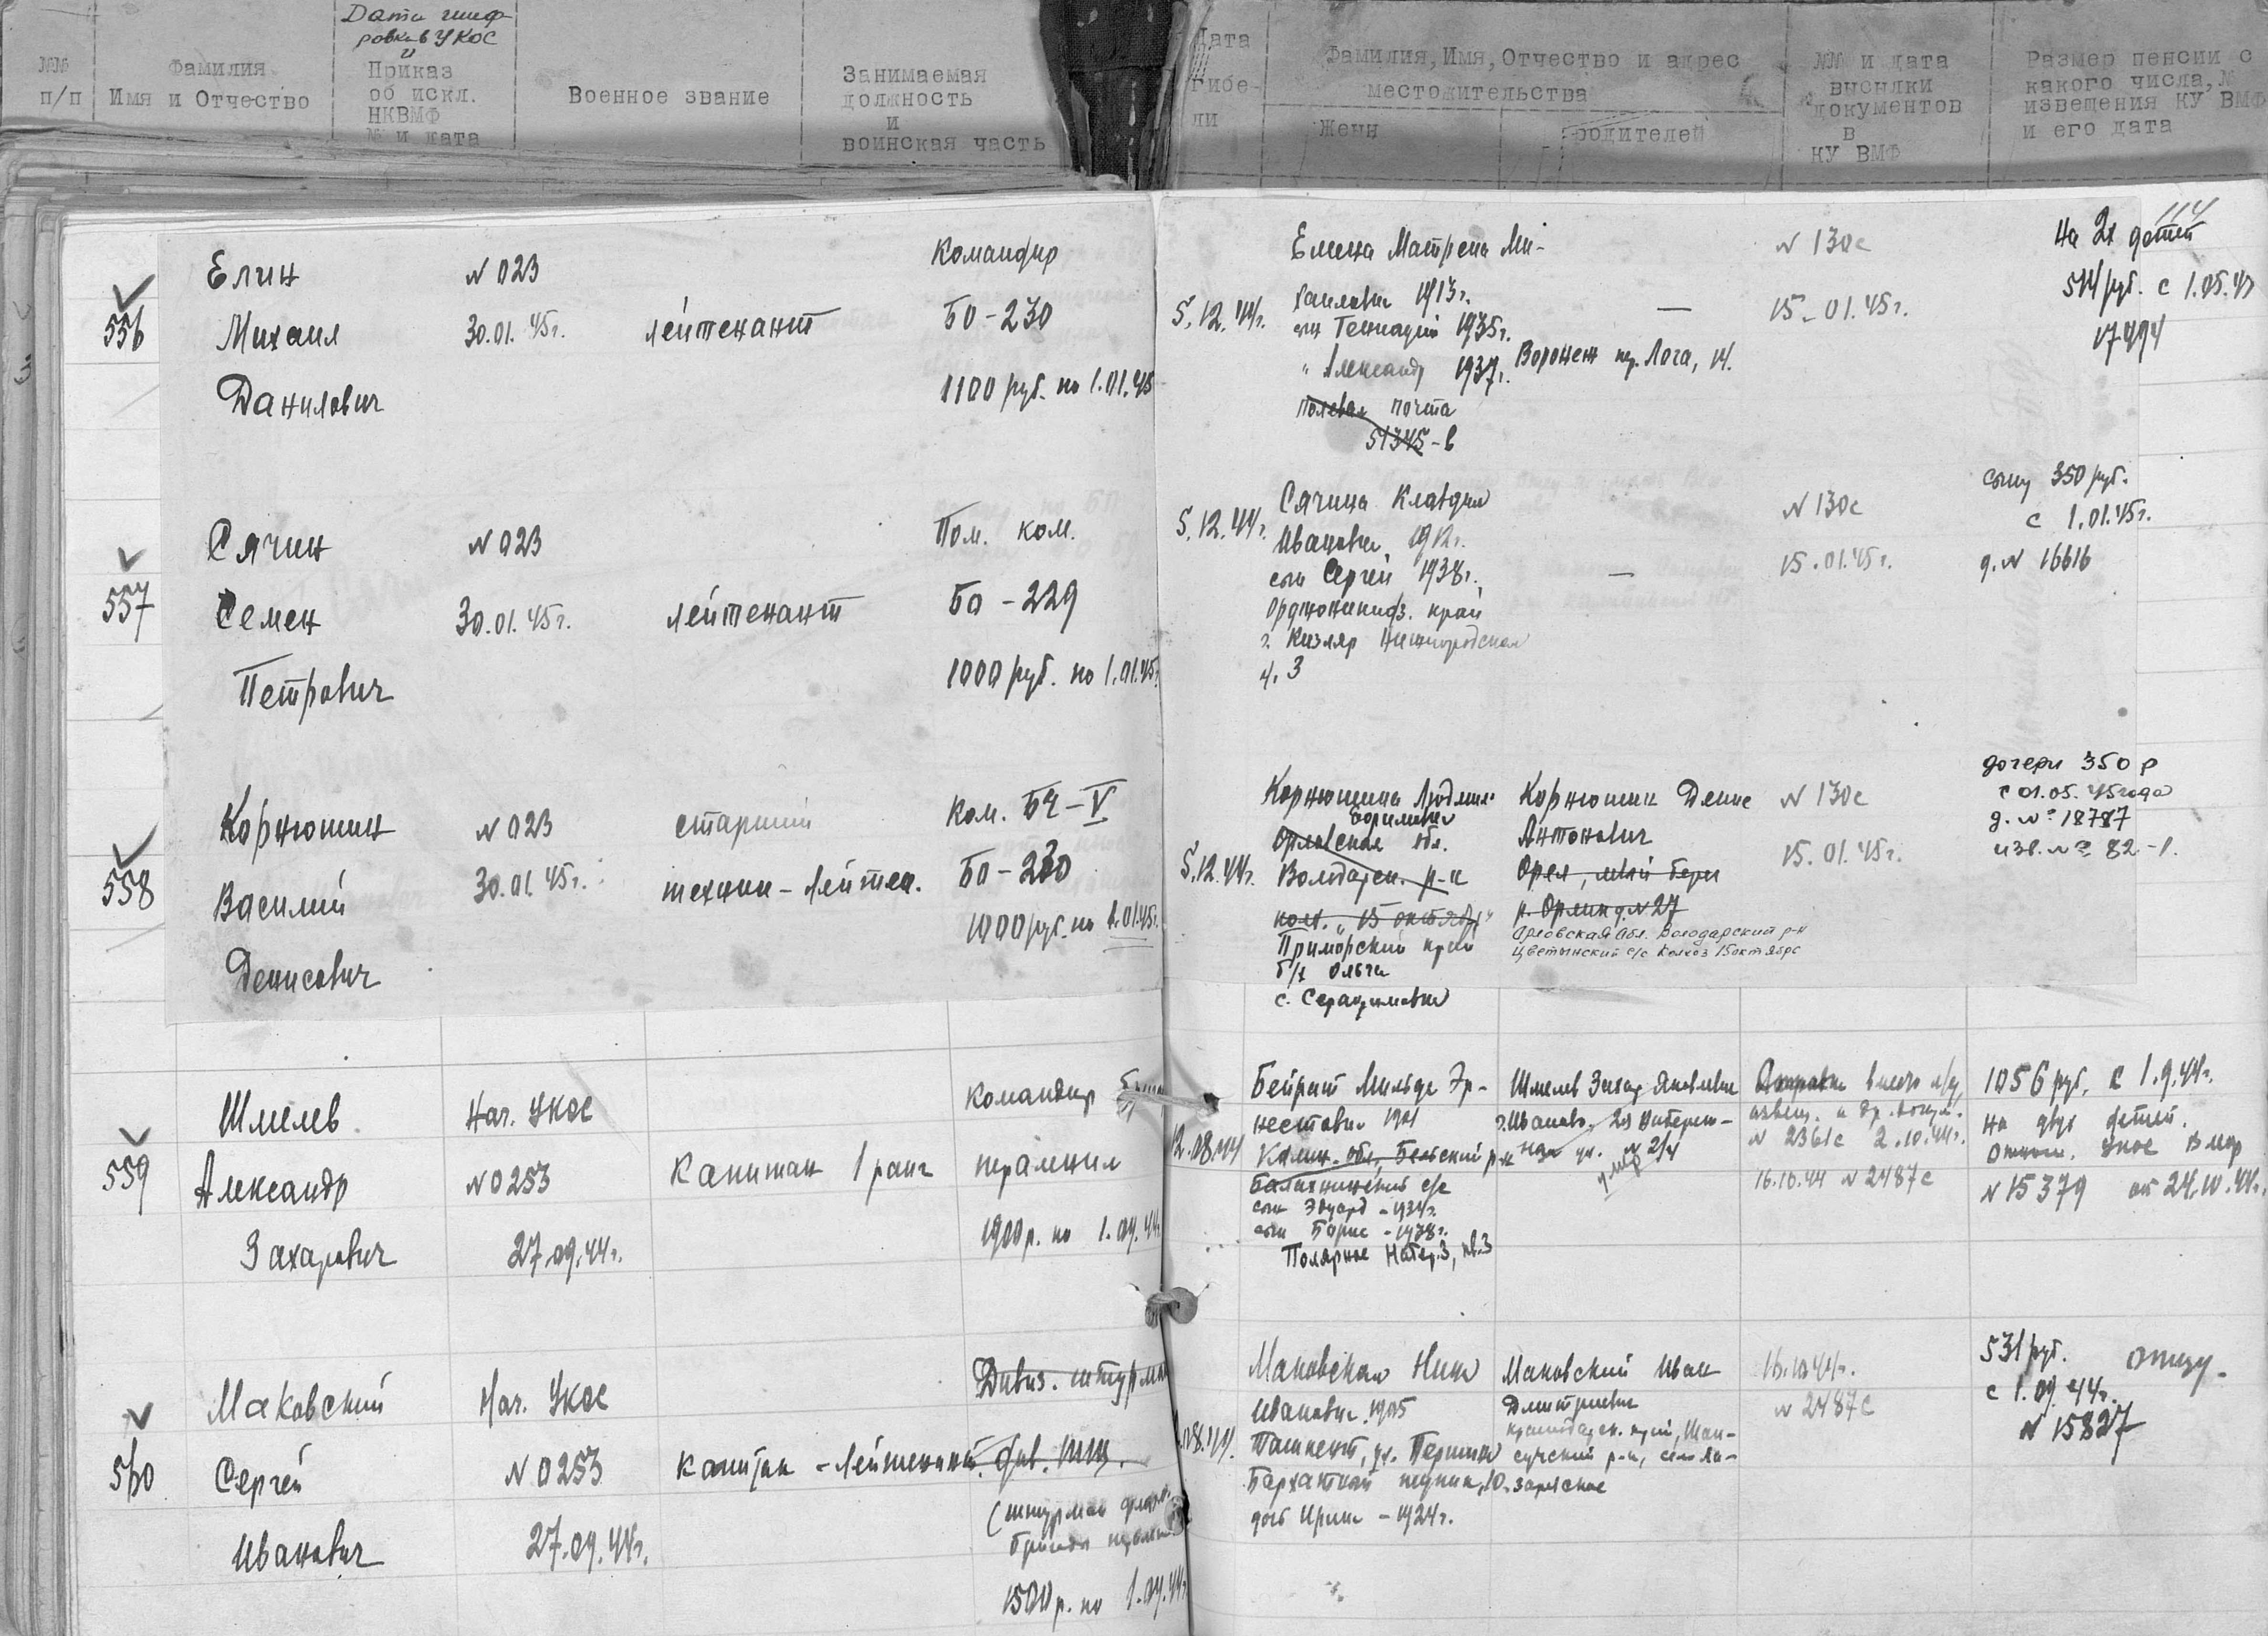 Дата шиф-
ровки в УКОС
и
№№
п/п
Фамилия
Имя и Отчество
Приказ
об искл.
НКВМФ
№ и дата
Военное звание
Занимаемая
должность
и
воинская часть
Дата
гибе-
ли
Фамилия, Имя, Отчество и адрес
местожительства
Жены
родителей
№№ и дата
высылки
документов
в
КУ ВМФ
Размер пенсии с
какого числа, №
извещения КУ ВМФ
и его дата
114
556
Елин
Михаил
Данилович
N 023
30.01.45г.
лейтенант
Командир
БО-230
1100 руб. по 1.01.45
5.12.44г.
Елина Матрена Ми-
хайловна 1913г.
сын Геннадий 1935г.
" Александр 1937г.
Воронеж пер. Лога, 14.
полевая почта
51345-в
—
N 130с
15.01.45г.
На 2х детей
514 руб. с 1.05.45
17494
557
Сячин
Семен
Петрович
N 023
30.01.45г.
лейтенант
Пом. ком.
БО-229
1000 руб. по 1.01.45г.
5.12.44г.
Сячина Клавдия
Ивановна, 1912г.
сын Сергей 1938г.
Орджоникидз. край
г. Кизляр Нижегородская
д. 3
—
N 130с
15.01.45г.
сыну 350 руб.
с 1.01.45г.
д. N 16616
558
Корнюшин
Василий
Денисович
N 023
30.01.45г.
старший
техник-лейтен.
Ком. БЧ-V
БО-230
1000 руб. по 1.01.45г.
5.12.44г.
Корнюшина Людмила
Орловская обл.
Володарск. р-н
колх. "15 октября"
Приморский край
б/х Ольга
с. Серафимовка
Корнюшин Денис
Антонович
Орел,
р. Орлик д. N 27
Орловская обл. Володарский р-н
Цветынский с/с Колхоз 15 октября
N 130с
15.01.45г.
дочери 350 р
с 01.05.45 года
д. N 18787
изв. N 82-1.
559
Шмелев
Александр
Захарович
Нач. УКОС
N 0253
27.09.44г.
Капитан 1 ранг
Командир
1900 р. по 1.09.44
12.08.44
Бейрит Мильда Эр-
нестовна 1901
Калин. обл., Бельский р-н
с/с
сын Эдуард - 1934г.
сын Борис - 1938г.
Полярное Набер. 3, кв. 3
Шмелев Захар Яковлевич
г. Иваново, 2я Набереж-
ная ул. N 2/4
умер
извещ. и др. докум.
N 2361с 2.10.44г.
16.10.44 N 2487с
1056 руб. с 1.9.44г.
На двух детей.
УКОС
N 15379 от 24.10.44г.
560
Маковский
Сергей
Иванович
Нач. УКОС
N 0253
27.09.44г.
Капитан-лейтенант
Дивиз. штурман
див.
(штурман
1500 р. по 1.09.44г.
.08.44.
Маковская Нина
Ивановна 1905
Ташкент, ул. Першина
дочь Ирина - 1924г.
Маковский Иван
Дмитриевич
Краснодарск. край,
16.10.44г.
N 2487с
531 руб. отцу.
с 1.09.44г.
N 15827